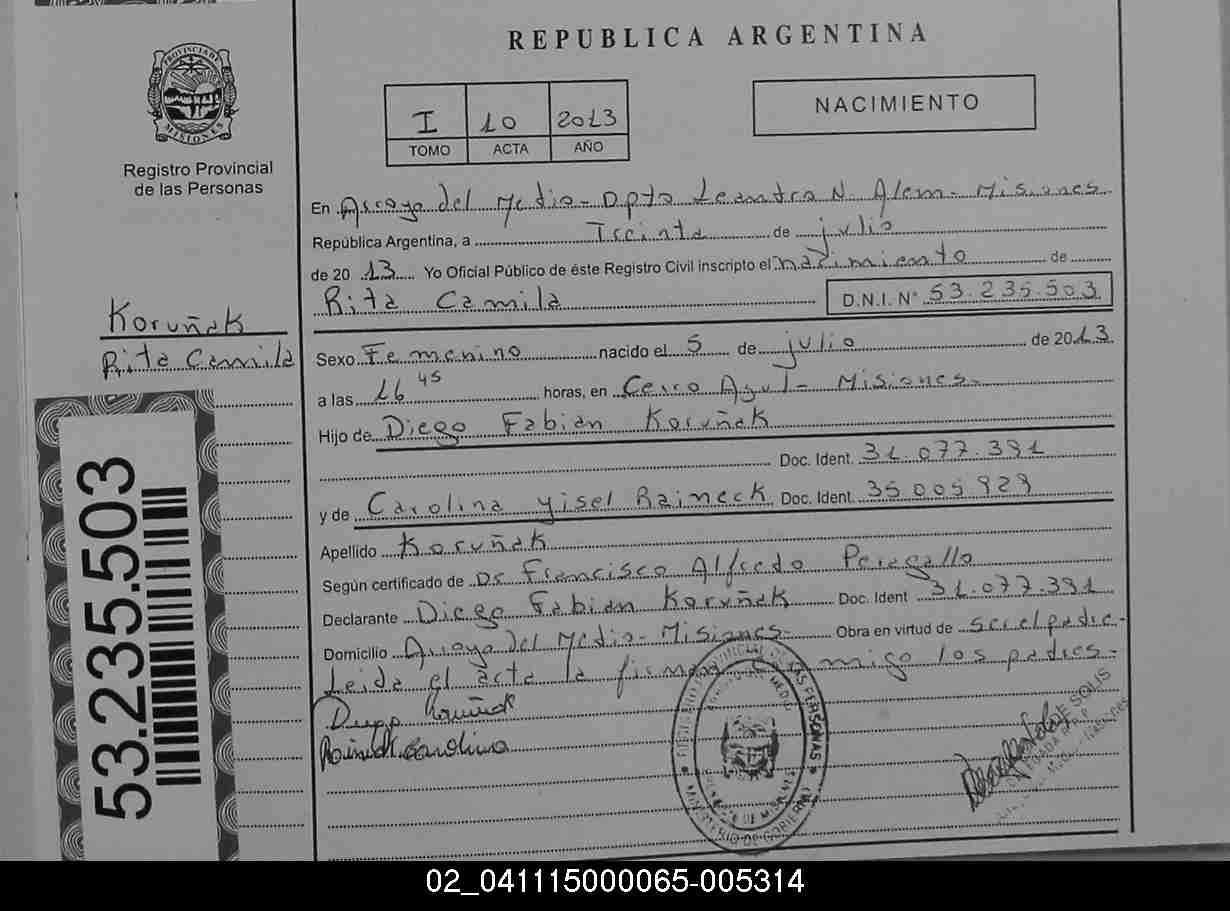 PROVINCIA DE
MISIONES
Registro Provincial
de las Personas
Koruñak
Rita Camila
53.235.503
REPUBLICA ARGENTINA
I 10 2013
TOMO ACTA AÑO
NACIMIENTO
En Arroyo del Medio - Dpto Leandro N. Alem - Misiones
República Argentina, a Treinta de julio
de 20 13 Yo Oficial Público de éste Registro Civil inscripto el nacimiento de
Rita Camila D.N.I. N° 53.235.503
Sexo Femenino nacido el 5 de julio de 2013
a las 16 45 horas, en Cerro Azul - Misiones -
Hijo de Diego Fabian Koruñak
Doc. Ident. 31.077.391
y de Carolina Yisel Raineck Doc. Ident. 35 005 929
Apellido Koruñak
Según certificado de Dr Francisco Alfredo Peragallo
Declarante Diego Fabian Koruñak Doc. Ident 31.077.391
Domicilio Arroyo del Medio - Misiones - Obra en virtud de ser el padre -
Leida el acta la firman conmigo los padres -
Diego Koruñak
Raineck Carolina
PROVINCIAL DE LAS PERSONAS
MINISTERIO DE GOBIERNO
DE SOLIS
02_041115000065-005314